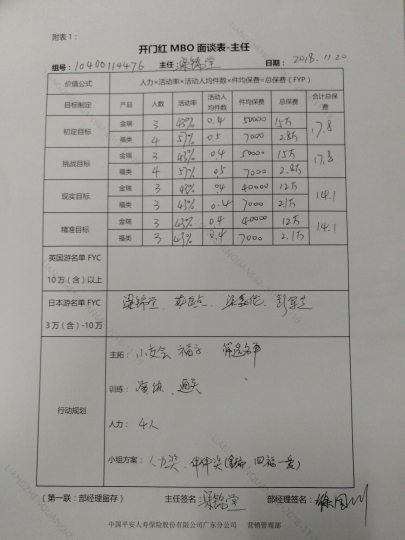 附表1：
开门红 MBO 面谈表-主任
组号：10400114476 主任 日期：2018.11.20
价值公式 人力×活动率×活动人均件数×件均保费=总保费（FYP）
目标制定 产品 人数 活动率 活动人均件数 件均保费 总保费 合计总保费
初定目标 金瑞 3 45% 0.4 50000 15万 17.8
福类 4 57% 0.5 7000 2.8万
挑战目标 金瑞 3 45% 0.4 50000 15万 17.8
福类 4 57% 0.5 7000 2.8万
现实目标 金瑞 3 45% 0.4 40000 12万 14.1
福类 3 45% 0.4 7000 2.1万
精准目标 金瑞 3 45% 0.4 40000 12万 14.1
福类 3 45% 0.4 7000 2.1万
英国游名单 FYC
10万（含）以上
日本游名单 FYC
3万（含）-10万
行动规划
主拓：小交会
训练：演练、通关
人力：4人
小组方案：人力奖、件件奖
（第一联：部经理留存） 主任签名： 部经理签名：
中国平安人寿保险股份有限公司广东分公司 营销管理部